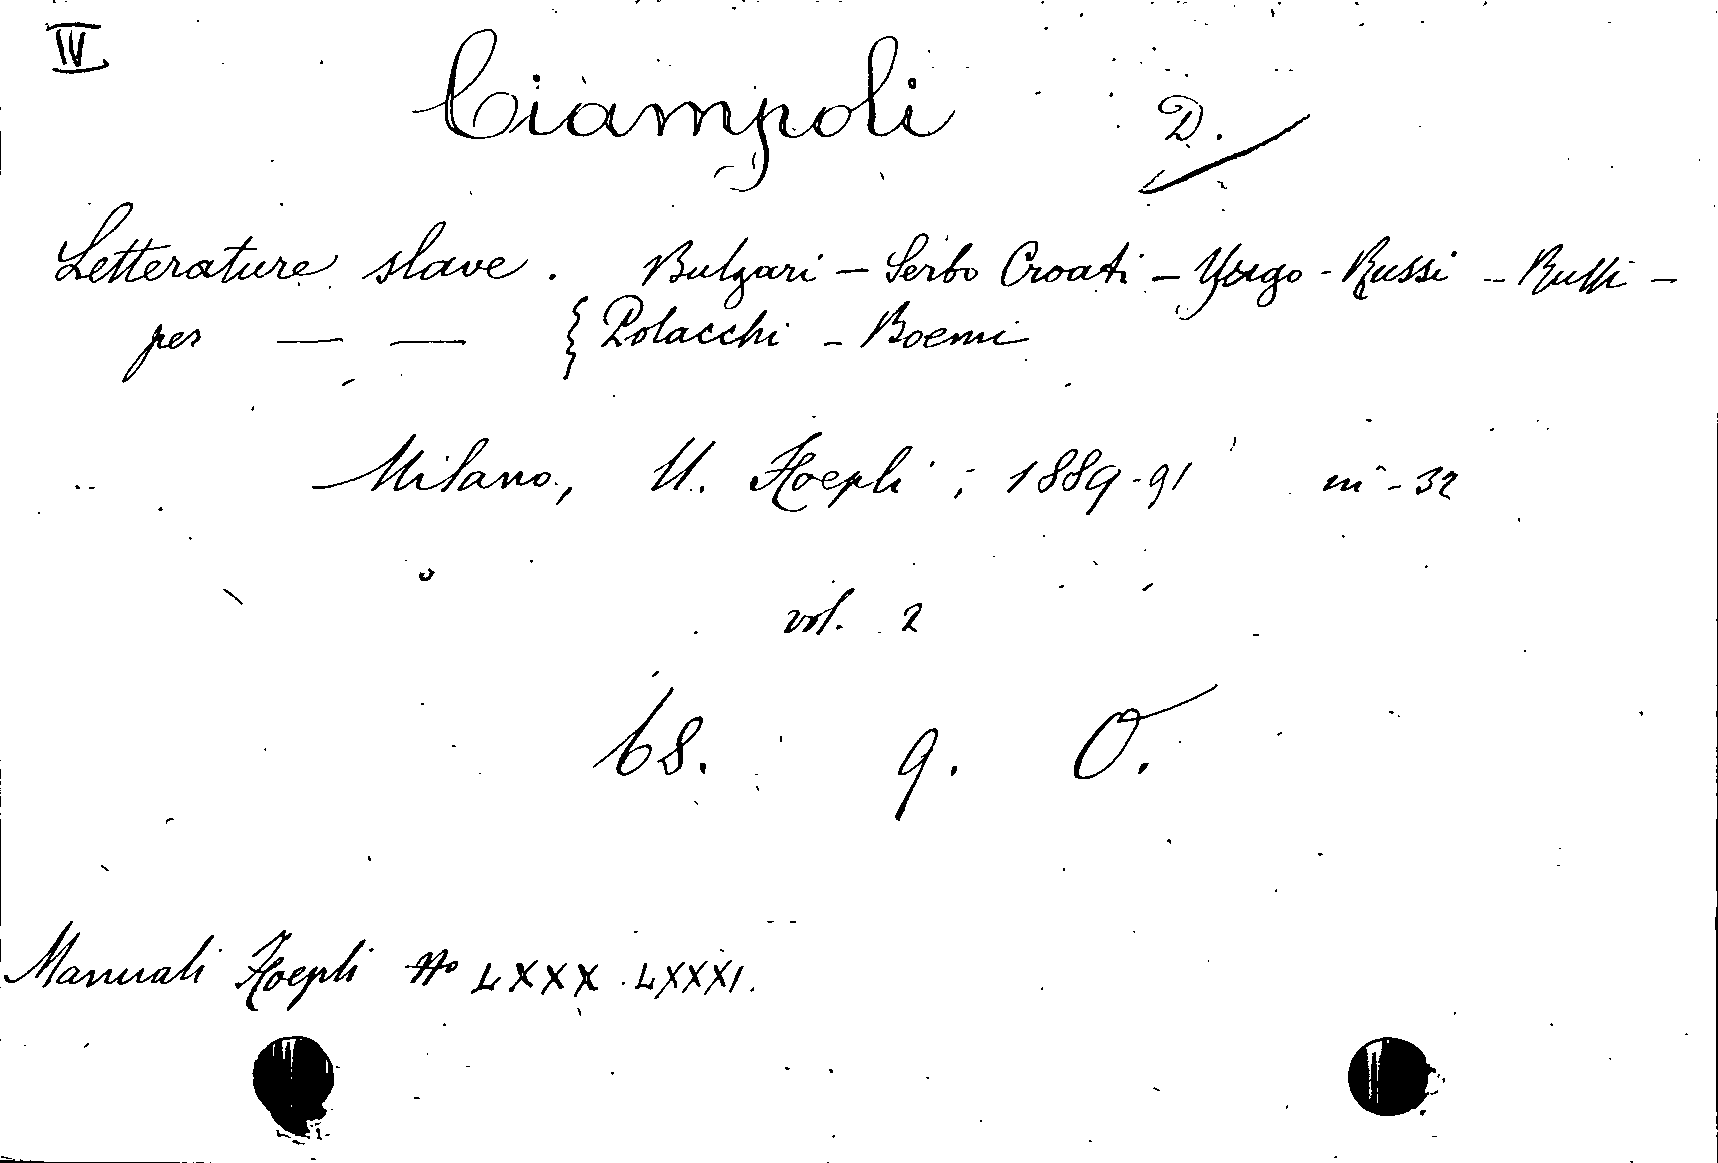 IV
Ciampoli D.
Letterature slave. Bulgari – Serbo Croati – Yugo - Russi - Russi -
per — — { Polacchi - Boemi
Milano, U. Hoepli; 1889-91 in - 32
vol. 2
68. 9. O.
Manuali Hoepli No LXXX. LXXXI.